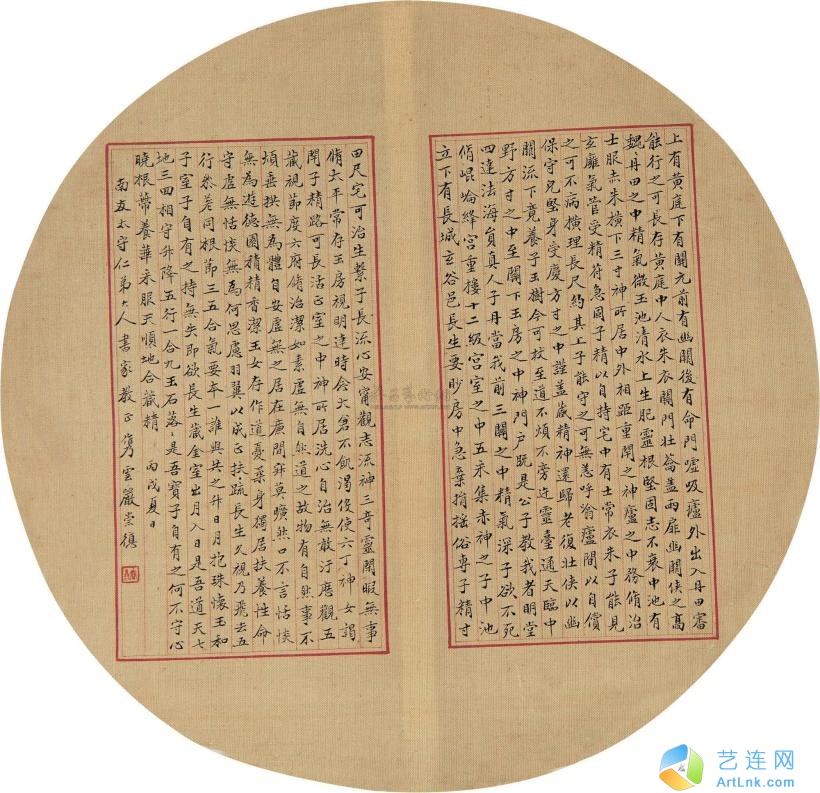 上有黄庭下有關元前有幽關後有命門噓吸廬外出入丹田審
能行之可長存黄庭中人衣朱衣關門壯蘥盖兩扉幽關俠之高
魏丹田之中精氣微玉池清水上生肥靈根堅固志不衰中池有
士服赤朱橫下三寸神所居中外相距重閉之神廬之中務脩治
玄廱氣管受精符急固子精以自持宅中有士常衣朱子能見
之可不病橫理長尺約其上子能守之可無恙呼噏廬間以自償
保守完堅身受慶方寸之中謹盖藏精神還歸老復壯俠以幽
闕流下竟養子玉樹令可杖至道不煩不旁迕靈臺通天臨中
野方寸之中至關下玉房之中神門户既是公子教我者明堂
四達法海員真人子丹當我前三關之中精氣深子欲不死
脩崐崘絳宮重樓十二級宫室之中五采集赤神之子中池
立下有長城玄谷邑長生要眇房中急棄捐搖俗專子精寸
田尺宅可治生繫子長流心安甯觀志流神三奇靈閒暇無事
脩太平常存玉房視明達時念大倉不飢渴役使六丁神女謁
閉子精路可長活正室之中神所居洗心自治無敢汙歷觀五
藏視節度六府脩治潔如素虚無自然道之故物有自然事不
煩垂拱無為體自安虚無之居在廉間寂莫曠然口不言恬惔
無為遊德園積精香潔玉女存作道憂柔身獨居扶養性命
守虚無恬惔無為何思慮羽翼以成正扶疏長生久視乃飛去五
行參差同根節三五合氣要本一誰與共之升日月抱珠懷玉和
子室子自有之持無失即欲長生藏金室出月入日是吾道天七
地三回相守升降五行一合九玉石落是吾寶子自有之何不守心
曉根蒂養華采服天順地合藏精 丙戌夏日
太守仁弟大人 書家教正 雋雲嚴崇德
艺连网
ArtLnk.com